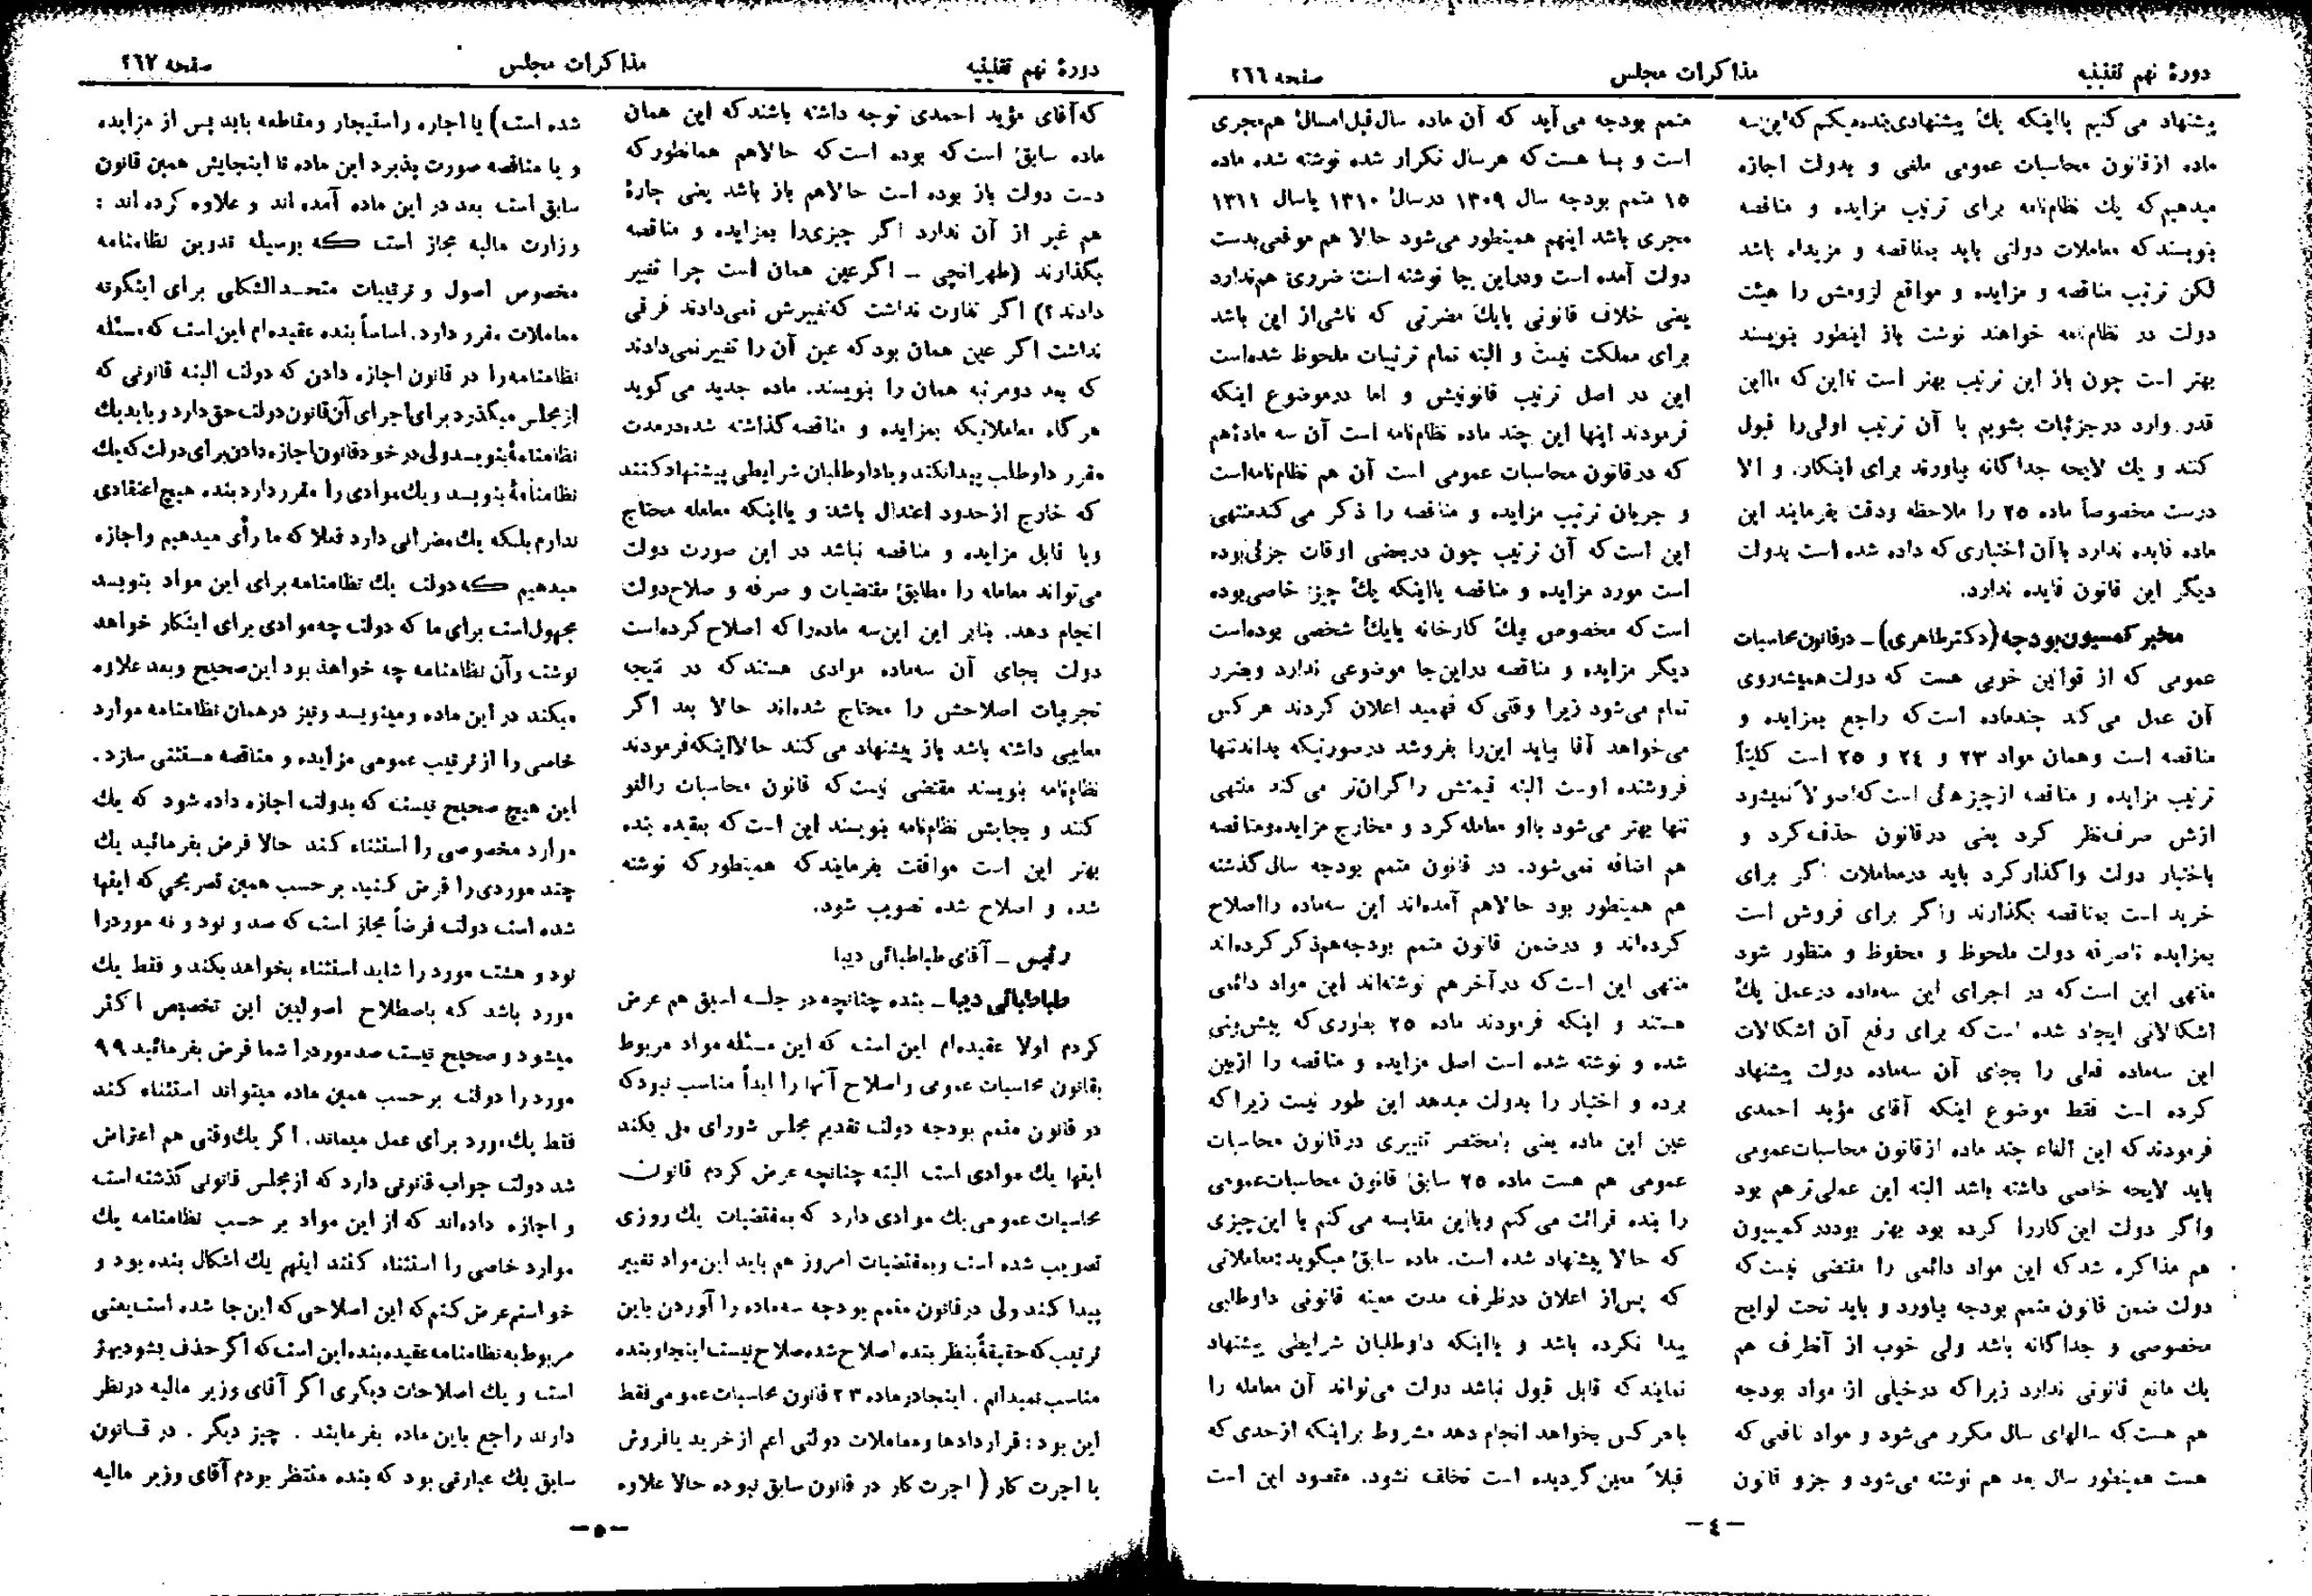 دورهٔ نهم تقنینیه
مذاکرات مجلس
صفحه ۲۶۶
پیشنهاد می‌کنیم یا اینکه یک پیشنهادی بنده میکنم که این سه
ماده از قانون محاسبات عمومی ملغی و بدولت اجازه
میدهیم که یك نظام‌نامه برای ترتیب مزایده و مناقصه
بنویسند که معاملات دولتی باید بمناقصه و مزیداه باشد
لکن ترتیب مناقصه و مزایده و مواقع لزومش را هیئت
دولت در نظام‌نامه خواهند نوشت باز اینطور بنویسند
بهتر است چون باز این ترتیب بهتر است تا این که ما این
قدر وارد در جزئیات بشویم یا آن ترتیب اولی را قبول
کنند و یك لایحه جداگانه بیاورند برای اینکار. و الا
درست مخصوصاً ماده ۲۵ را ملاحظه ودقت بفرمایند این
ماده فایده ندارد با آن اختیاری که داده شده است بدولت
دیگر این قانون فایده ندارد.
مخبر کمسیون بودجه (دکتر طاهری) ـ در قانون محاسبات
عمومی که از قوانین خوبی هست که دولت همیشه روی
آن عمل می‌کند چند ماده است که راجع بمزایده و
مناقصه است وهمان مواد ۲۳ و ۲۴ و ۲۵ است کلیتاً
ترتیب مزایده و مناقصه از چیزهائی است که اصولاً نمیشود
ازش صرف‌نظر کرد یعنی در قانون حذف کرد و
باختیار دولت واگذار کرد باید در معاملات اگر برای
خرید است بمناقصه بگذارند واگر برای فروش است
بمزایده تا صرفه دولت ملحوظ و محفوظ و منظور شود
منتهی این است که در اجرای این سه‌ماده در عمل یك
اشکالاتی ایجاد شده است که برای رفع آن اشکالات
این سه‌ماده فعلی را بجای آن سه‌ماده دولت پیشنهاد
کرده است فقط موضوع اینکه آقای مؤید احمدی
فرمودند که این الغاء چند ماده از قانون محاسبات عمومی
باید لایحه خاصی داشته باشد البته این عملی‌تر هم بود
واگر دولت این کار را کرده بود بهتر بود در کمیسیون
هم مذاکره شد که این مواد دائمی را مقتضی نیست که
دولت ضمن قانون متمم بودجه بیاورد و باید تحت لوایح
مخصوصی و جداگانه باشد ولی خوب از آنطرف هم
یك مانع قانونی ندارد زیرا که در خیلی از مواد بودجه
هم هست که سالهای سال مکرر می‌شود و مواد نافعی که
هست همینطور سال بعد هم نوشته می‌شود و جزو قانون
متمم بودجه می‌آید که آن ماده سال قبل امسال هم مجری
است و بسا هست که هر سال تکرار شده نوشته شده ماده
۱۵ متمم بودجه سال ۱۳۰۹ در سال ۱۳۱۰ یا سال ۱۳۱۱
مجری باشد اینهم همینطور می‌شود حالا هم موقعی بدست
دولت آمده است و در این جا نوشته است ضرری هم ندارد
یعنی خلاف قانونی یا یك مضرتی که ناشی از این باشد
برای مملکت نیست و البته تمام ترتیبات ملحوظ شده است
این در اصل ترتیب قانونیش و اما در موضوع اینکه
فرمودند اینها این چند ماده نظام‌نامه است آن سه ماده هم
که در قانون محاسبات عمومی است آن هم نظام‌نامه است
و جریان ترتیب مزایده و مناقصه را ذکر می‌کند منتهی
این است که آن ترتیب چون در بعضی اوقات جزئی بوده
است مورد مزایده و مناقصه یا اینکه یك چیز خاصی بوده
است که مخصوص یك کارخانه یا یك شخصی بوده است
دیگر مزایده و مناقصه در این جا موضوعی ندارد وبضرر
تمام می‌شود زیرا وقتی که فهمید اعلان کردند هر کس
می‌خواهد آقا بیاید این را بفروشد در صورتیکه بداند تنها
فروشنده اوست البته قیمتش را گران‌تر می‌کند منتهی
تنها بهتر می‌شود با او معامله کرد و مخارج مزایده ومناقصه
هم اضافه نمی‌شود. در قانون متمم بودجه سال گذشته
هم همینطور بود حالا هم آمده‌اند این سه‌ماده را اصلاح
کرده‌اند و در ضمن قانون متمم بودجه هم ذکر کرده‌اند
منتهی این است که در آخر هم نوشته‌اند این مواد دائمی
هستند و اینکه فرمودند ماده ۲۵ بطوری که پیش‌بینی
شده و نوشته شده است اصل مزایده و مناقصه را از بین
برده و اختیار را بدولت میدهد این طور نیست زیرا که
عین این ماده یعنی با مختصر تغییری در قانون محاسبات
عمومی هم هست ماده ۲۵ سابق قانون محاسبات عمومی
را بنده قرائت می‌کنم و با این مقایسه می‌کنم با این چیزی
که حالا پیشنهاد شده است. ماده سابق میگوید: معاملاتی
که پس از اعلان در ظرف مدت معینه قانونی داوطلبی
پیدا نکرده باشد و یا اینکه داوطلبان شرایطی پیشنهاد
نمایند که قابل قبول نباشد دولت می‌تواند آن معامله را
با هر کس بخواهد انجام دهد مشروط بر اینکه از حدی که
قبلاً معین گردیده است تخلف نشود. مقصود این است
ـ ٤ ـ
دورهٔ نهم تقنینیه
مذاکرات مجلس
صفحه ۲۶۷
که آقای مؤید احمدی توجه داشته باشند که این همان
ماده سابق است که بوده است که حالا هم همانطور که
دست دولت باز بوده است حالا هم باز باشد یعنی چارهٔ
هم غیر از آن ندارد اگر چیزی را بمزایده و مناقصه
بگذارند (طهرانچی ـ اگر عین همان است چرا تغییر
دادند؟) اگر تفاوت نداشت که تغییرش نمی‌دادند فرقی
نداشت اگر عین همان بود که عین آن را تغییر نمی‌دادند
که بعد دو مرتبه همان را بنویسند. ماده جدید می‌گوید
هر گاه معاملاتیکه بمزایده و مناقصه گذاشته شده در مدت
مقرر داوطلب پیدا نکند و یا داوطلبان شرایطی پیشنهاد کنند
که خارج از حدود اعتدال باشد و یا اینکه معامله محتاج
ویا قابل مزایده و مناقصه نباشد در این صورت دولت
می‌تواند معامله را مطابق مقتضیات و صرفه و صلاح دولت
انجام دهد. بنابر این این سه ماده را که اصلاح کرده است
دولت بجای آن سه‌ماده موادی هستند که در نتیجه
تجربیات اصلاحش را محتاج شده‌اند حالا بعد اگر
معایبی داشته باشد باز پیشنهاد می‌کنند حالا اینکه فرمودند
نظام‌نامه بنویسند مقتضی نیست که قانون محاسبات را لغو
کنند و بجایش نظام‌نامه بنویسند این است که بعقیده بنده
بهتر این است موافقت بفرمایند که همینطور که نوشته
شده و اصلاح شده تصویب شود.
رئیس ـ آقای طباطبائی دیبا
طباطبائی دیبا ـ بنده چنانچه در جلسه اسبق هم عرض
کردم اولا عقیده‌ام این است که این مسئله مواد مربوط
بقانون محاسبات عمومی و اصلاح آنها را ابداً مناسب نبود که
در قانون متمم بودجه دولت تقدیم مجلس شورای ملی بکند
اینها یك موادی است البته چنانچه عرض کردم قانون
محاسبات عمومی یك موادی دارد که بمقتضیات یك روزی
تصویب شده است و بمقتضیات امروز هم باید این مواد تغییر
پیدا کند ولی در قانون متمم بودجه سه‌ماده را آوردن باین
ترتیب که حقیقةً بنظر بنده اصلاح شده صلاح نیست اینجا و بنده
مناسب نمیدانم. اینجا در ماده ۲۳ قانون محاسبات عمومی فقط
این بود: قراردادها ومعاملات دولتی اعم از خرید یا فروش
با اجرت کار (اجرت کار در قانون سابق نبوده حالا علاوه
شده است) یا اجاره و استیجار ومقاطعه باید پس از مزایده
و یا مناقصه صورت پذیرد این ماده تا اینجایش همین قانون
سابق است بعد در این ماده آمده‌اند و علاوه کرده‌اند:
وزارت مالیه مجاز است که بوسیله تدوین نظامنامه
مخصوص اصول و ترتیبات متحدالشکلی برای اینگونه
معاملات مقرر دارد. اساساً بنده عقیده‌ام این است که مسئله
نظامنامه را در قانون اجازه دادن که دولت البته قانونی که
از مجلس میگذرد برای اجرای آن قانون دولت حق دارد و باید یك
نظامنامهٔ بنویسد ولی در خود قانون اجازه دادن برای دولت که یك
نظامنامهٔ بنویسد و یك موادی را مقرر دارد بنده هیچ اعتقادی
ندارم بلکه یك مضراتی دارد فعلا که ما رأی میدهیم و اجازه
میدهیم که دولت یك نظامنامه برای این مواد بنویسد
مجهول است برای ما که دولت چه موادی برای اینکار خواهد
نوشت و آن نظامنامه چه خواهد بود این صحیح وبعد علاوه
میکند در این ماده و مینویسد و نیز در همان نظامنامه موارد
خاصی را از ترتیب عمومی مزایده و مناقصه مستثنی سازد.
این هیچ صحیح نیست که بدولت اجازه داده شود که یك
موارد مخصوصی را استثناء کند حالا فرض بفرمائید یك
چند موردی را فرض کنید. بر حسب همین تصریحی که اینها
شده است دولت فرضاً مجاز است که صد و نود و نه مورد را
نود و هشت مورد را شاید استثناء بخواهد بکند و فقط یك
مورد باشد که باصطلاح اصولیین این تخصیص اکثر
میشود و صحیح نیست صد مورد را شما فرض بفرمائید ۹۹
مورد را دولت بر حسب همین ماده میتواند استثناء کند
فقط یك مورد برای عمل میماند. اگر یك وقتی هم اعتراض
شد دولت جواب قانونی دارد که از مجلس قانونی گذشته است
و اجازه داده‌اند که از این مواد بر حسب نظامنامه یك
موارد خاصی را استثناء کنند اینهم یك اشکال بنده بود و
خواستم عرض کنم که این اصلاحی که این جا شده است یعنی
مربوط به نظامنامه عقیده بنده این است که اگر حذف بشود بهتر
است و یك اصلاحات دیگری اگر آقای وزیر مالیه در نظر
دارند راجع باین ماده بفرمایند. چیز دیگر. در قانون
سابق یك عبارتی بود که بنده منتظر بودم آقای وزیر مالیه
ـ ٥ ـ